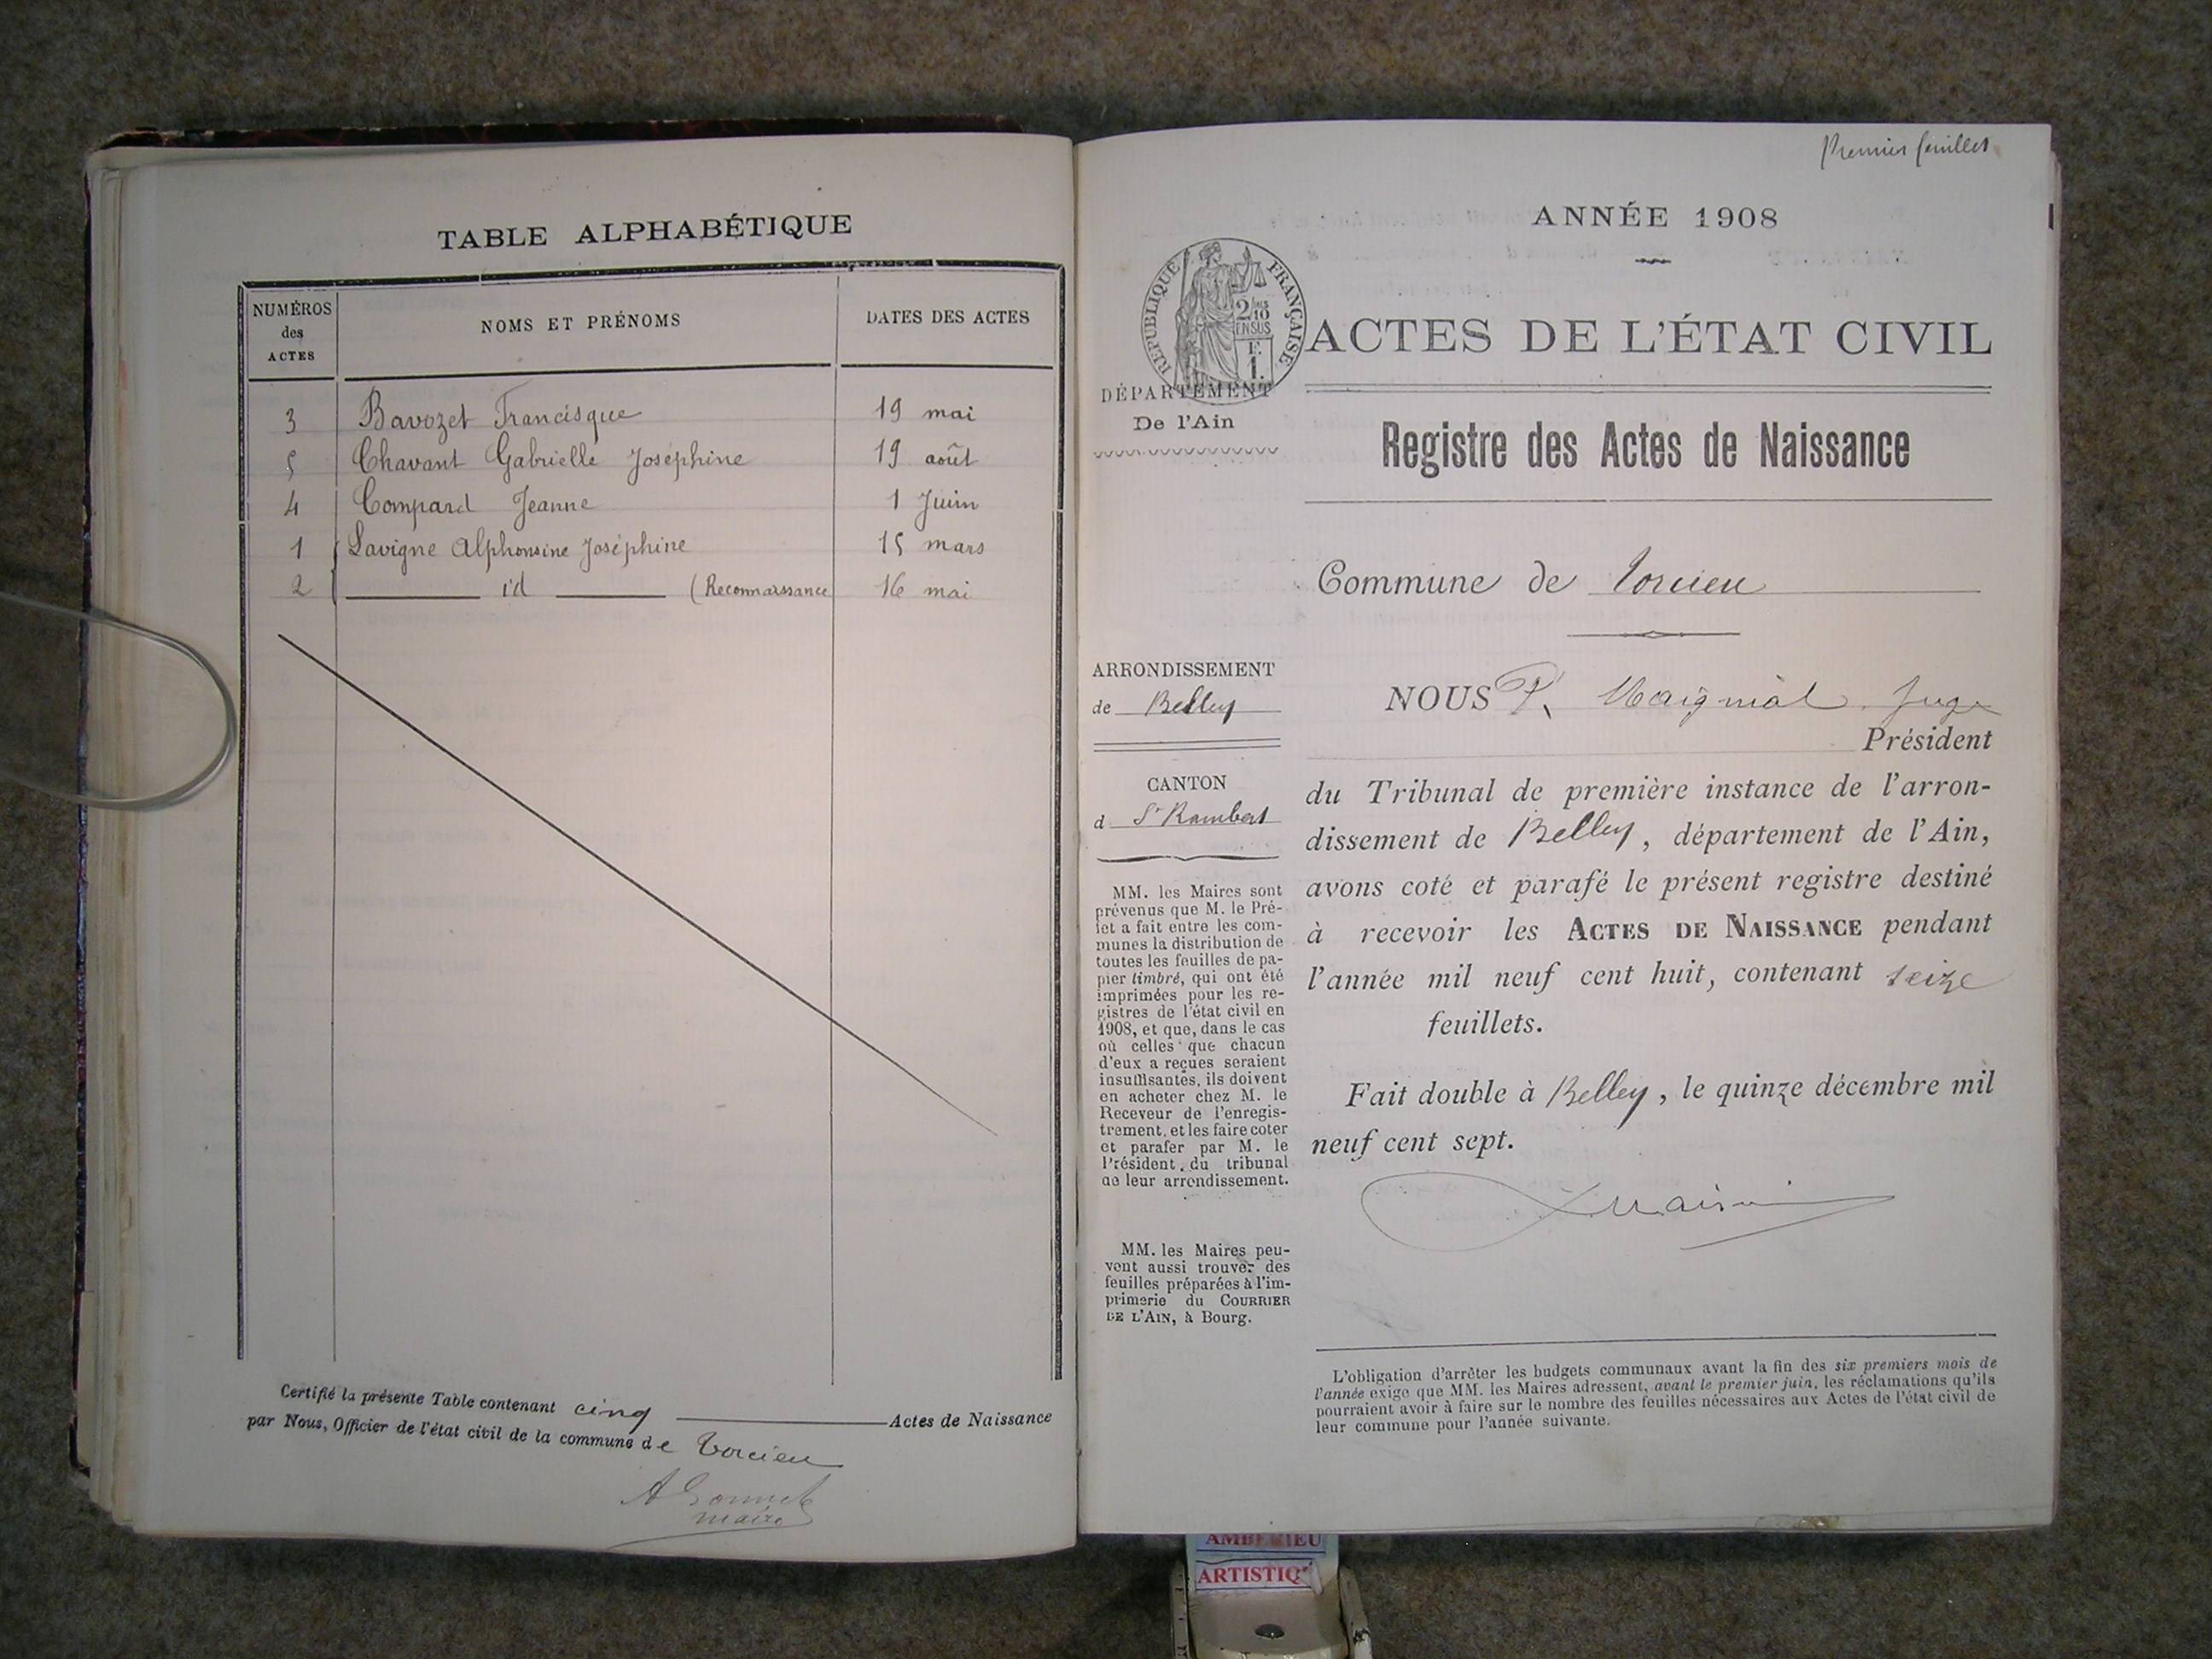 TABLE ALPHABÉTIQUE
NUMÉROS
des
ACTES
NOMS ET PRÉNOMS
DATES DES ACTES
3 Bavozet Francisque 19 mai
5 Chavant Gabrielle Joséphine 19 août
4 Compard Jeanne 1 Juin
1 Lavigne Alphonsine Joséphine 15 mars
2 id (Reconnaissance 16 mai
Certifié la présente Table contenant cinq Actes de Naissance
par Nous, Officier de l'état civil de la commune de Torcieu
A Bonnet
maire
Premier feuillet
ANNÉE 1908
RÉPUBLIQUE FRANÇAISE
2/10
EN SUS
F.
1.
ACTES DE L'ÉTAT CIVIL
DÉPARTEMENT
De l'Ain
Registre des Actes de Naissance
Commune de Torcieu
ARRONDISSEMENT
de Belley
CANTON
d St Rambert
MM. les Maires sont
prévenus que M. le Pré-
fet a fait entre les com-
munes la distribution de
toutes les feuilles de pa-
pier timbré, qui ont été
imprimées pour les re-
gistres de l'état civil en
1908, et que, dans le cas
où celles que chacun
d'eux a reçues seraient
insuffisantes, ils doivent
en acheter chez M. le
Receveur de l'enregis-
trement, et les faire coter
et parafer par M. le
Président du tribunal
de leur arrondissement.
MM. les Maires peu-
vent aussi trouver des
feuilles préparées à l'im-
primerie du COURRIER
DE L'AIN, à Bourg.
NOUS P. Maignial Juge
Président
du Tribunal de première instance de l'arron-
dissement de Belley, département de l'Ain,
avons coté et parafé le présent registre destiné
à recevoir les ACTES DE NAISSANCE pendant
l'année mil neuf cent huit, contenant seize
feuillets.
Fait double à Belley, le quinze décembre mil
neuf cent sept.
L'obligation d'arrêter les budgets communaux avant la fin des six premiers mois de
l'année exige que MM. les Maires adressent, avant le premier juin, les réclamations qu'ils
pourraient avoir à faire sur le nombre des feuilles nécessaires aux Actes de l'état civil de
leur commune pour l'année suivante.
AMBERIEU
ARTISTIQ